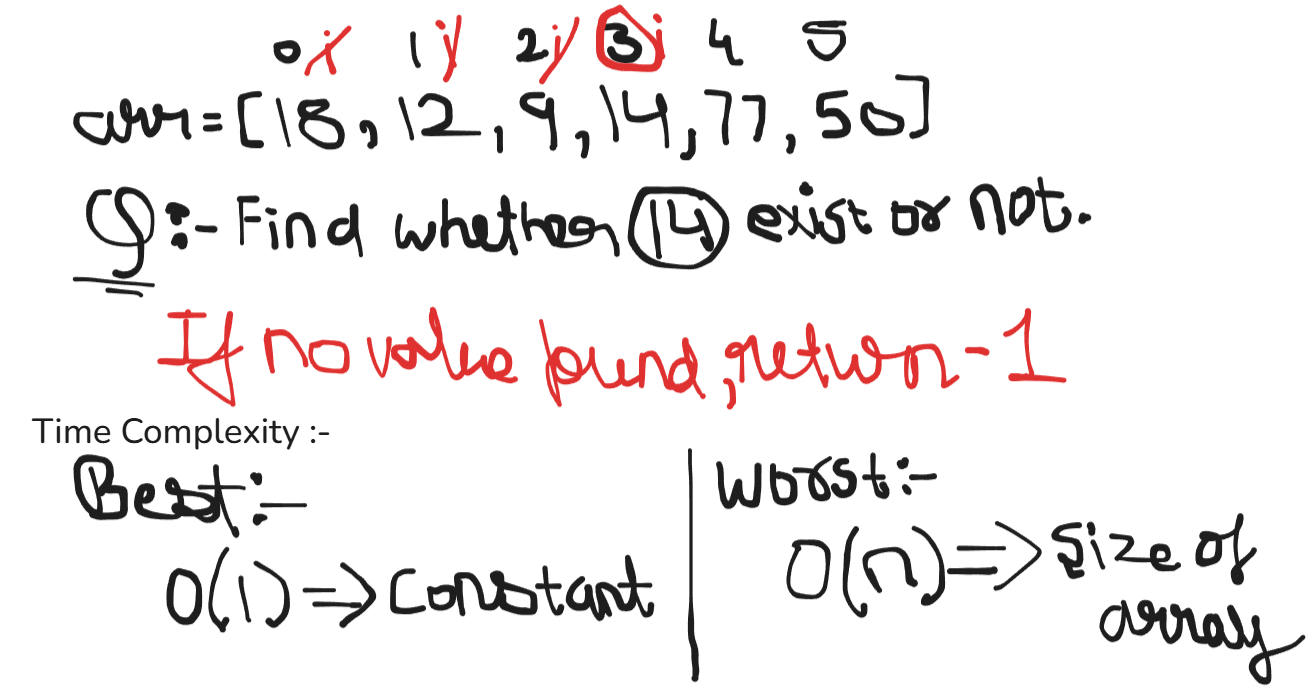 0 i 1 j 2 j 3 i 4 5
arr = [18, 12, 9, 14, 77, 50]
Q:- Find whether 14 exist or not.
If no value found, return -1
Time Complexity :-
Best:-
O(1) => Constant
Worst:-
O(n) => Size of
array